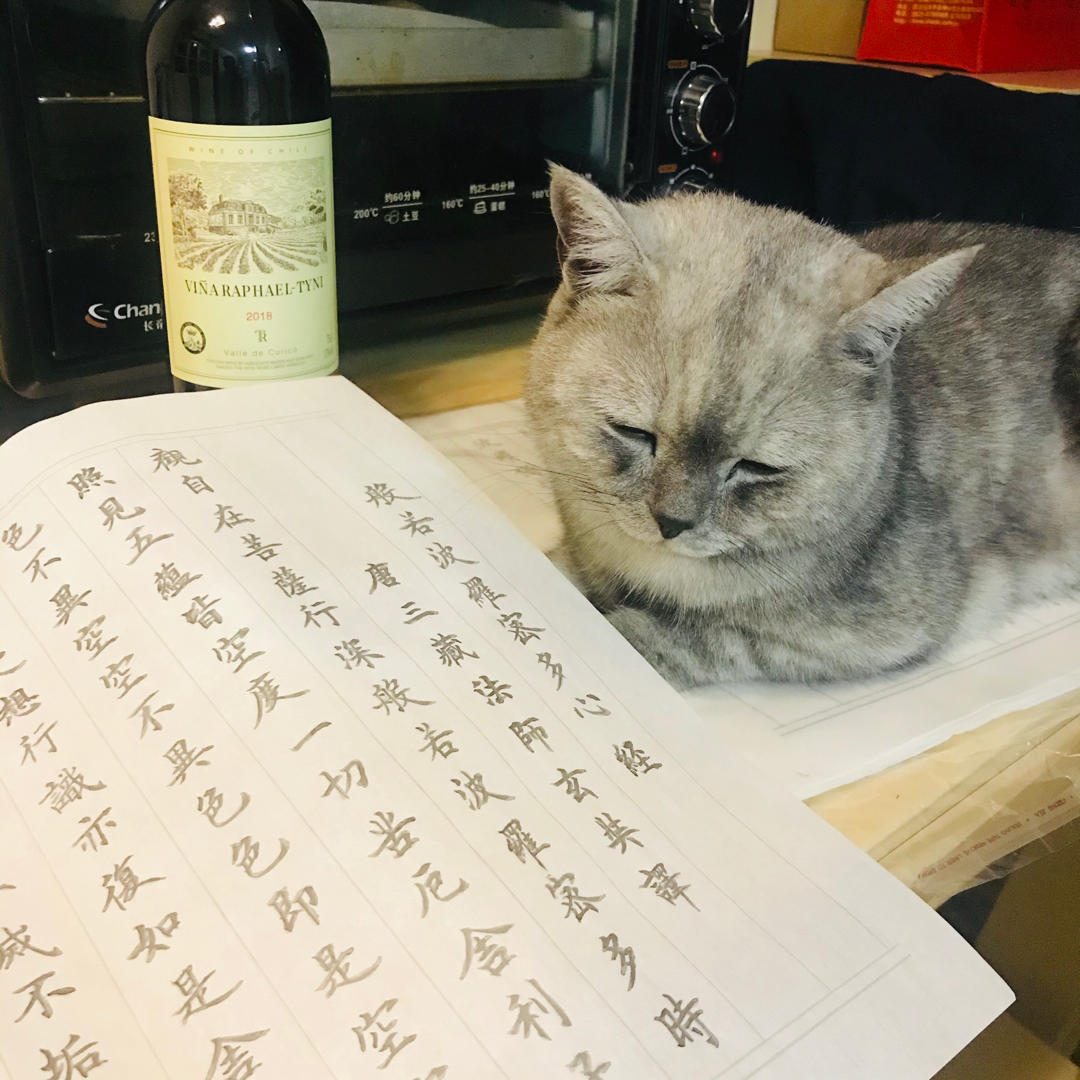 WINE OF CHILE
VIÑA RAPHAEL-TYNI
2018
TR
Valle de Curicó
200°C 约60分钟 土豆
160°C 约25-40分钟 蛋糕
160°C
Chan
般若波羅蜜多心經
唐三藏法師玄奘譯
觀自在菩薩行深般若波羅蜜多時
照見五蘊皆空度一切苦厄舍利子
色不異空空不異色色即是空
想行識亦復如是舍
滅不垢